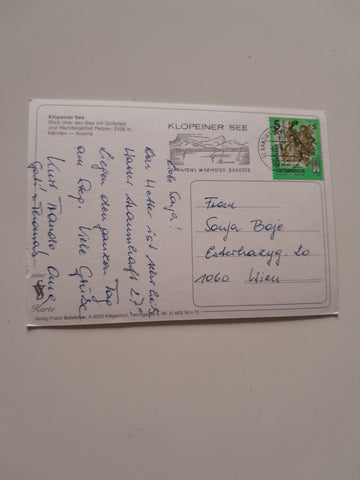 Klopeiner See
Blick über den See mit Golfplatz
und Wandergebiet Petzen, 2126 m.
Kärnten — Austria
KLOPEINER SEE
KÄRNTENS WÄRMSTER BADESEE
5 S
ÖSTERREICH
Liebe Sonja!
Das Wetter ist sehr heiß
Wasser 27°
Liegen den ganzen Tag
am Steg. Viele Grüße
Kurt
Frau
Sonja Boje
Esterhazyg. 20
1060 Wien
eine
Karte
Verlag Franz